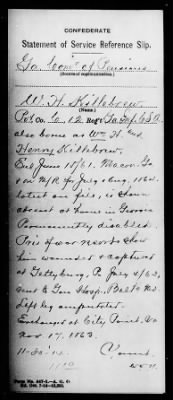 CONFEDERATE
Statement of Service Reference Slip.
Ga. Com'r of Pensions
(Source of communication.)
W. H. Kittebrew
(Name.)
Pvt. Co. 12 Reg't Ga. Inf. C S A
also borne as Wm H. and
Henry Kittebrew.
Enl June 15/61. Macon, Ga
on M/R for July & Aug. 1864,
latest on file, is shown
absent at home in Georgia
Permanently disabled.
Pris of war records show
him wounded & captured
at Gettysburg, Pa July 4/63,
sent to Gen. Hosp. Balto Md
Left leg amputated
Exchanged at City Point, Va
Nov. 17, 1863.